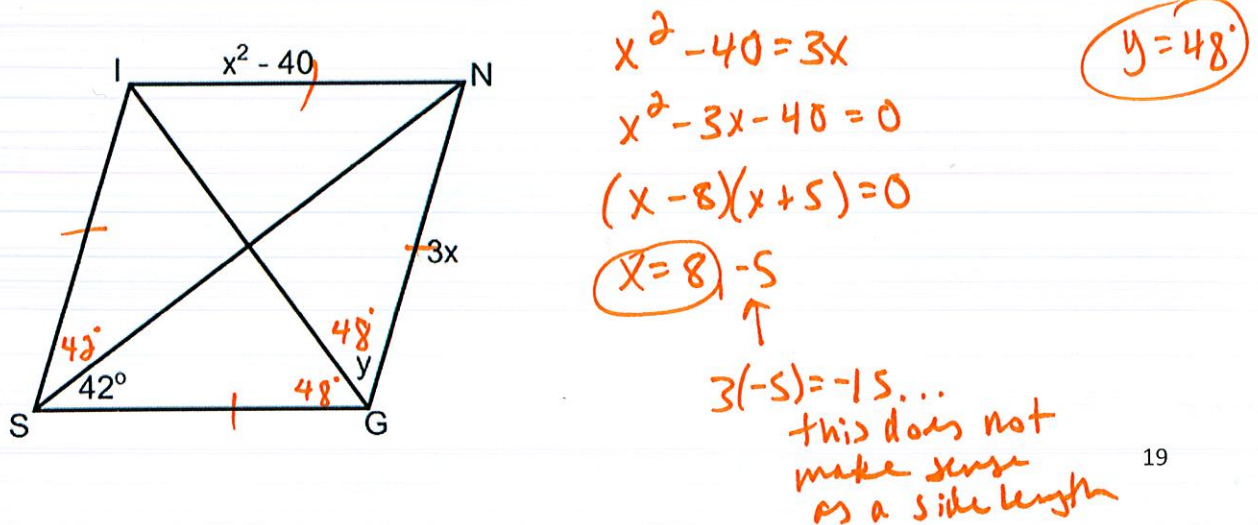 I
x² - 40
N
3x
42°
42°
48°
48°
y
S
G
x² - 40 = 3x
x² - 3x - 40 = 0
(x - 8)(x + 5) = 0
x = 8, -5
↑
3(-5) = -15...
this does not
make sense
as a side length
y = 48°
19